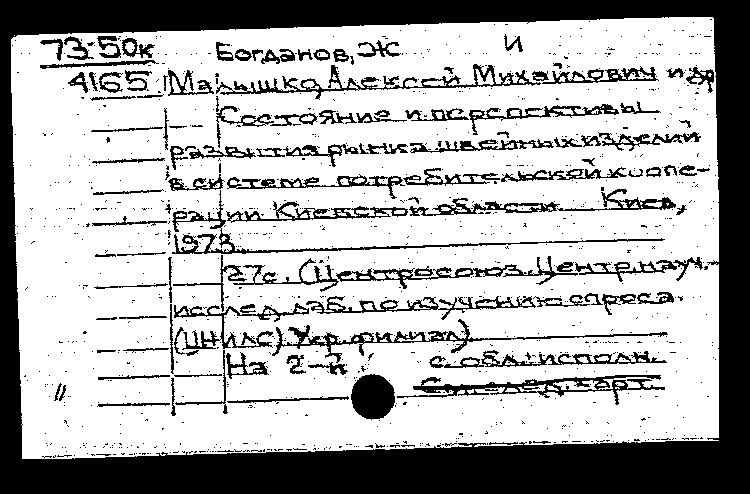 73-50к Богданов, Ж И
4165 Малышко, Алексей Михайлович и др
Состояние и перспективы
развития рынка швейных изделий
в системе потребительской коопе-
рации Киевской области Киев,
1973.
27с. (Центросоюз. Центр. науч.-
исслед. лаб. по изучению спроса.
(ЦНИЛС) Укр. филиал)
На 2-й с. обл.: исполн.
См. след. карт.
"